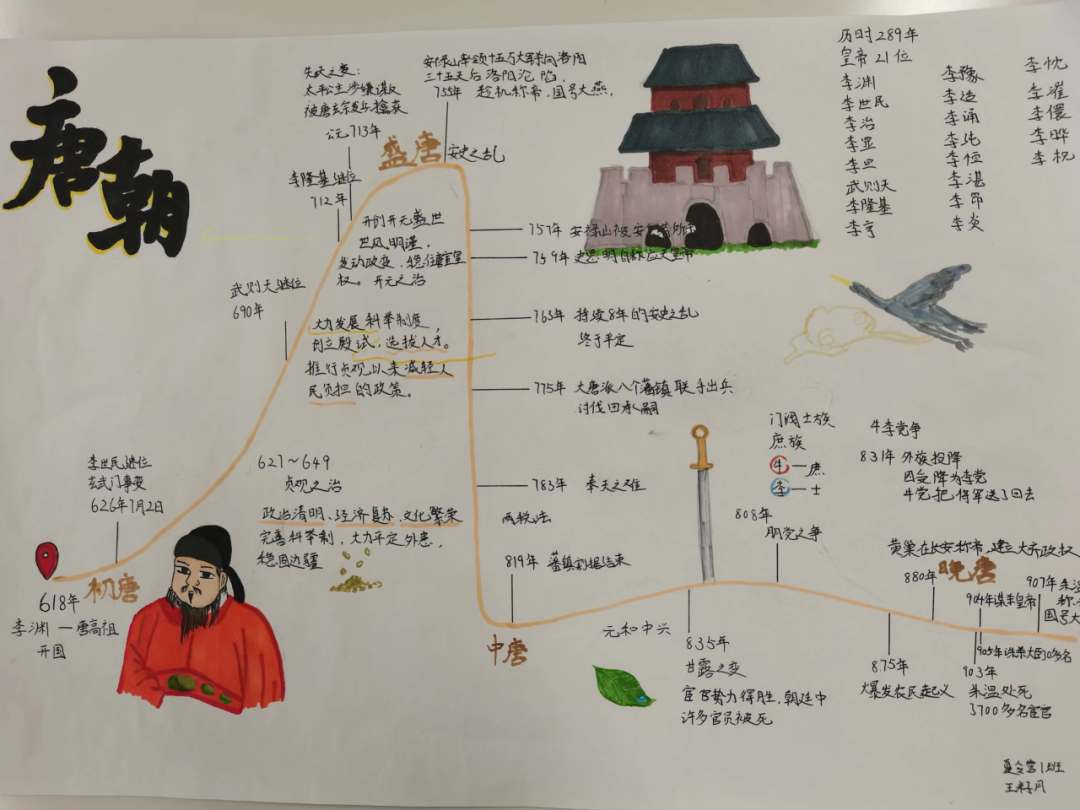 唐朝
先天之变：
太平公主涉嫌谋反
被唐玄宗发兵擒获
公元713年
安禄山率领十五万大军向洛阳
三十五天后洛阳沦陷，
755年 趁机称帝，国号大燕。
盛唐
安史之乱
李隆基继位
712年
开创开元盛世
权。开元之治
武则天继位
690年
大力发展科举制度，
创立殿试，选拔人才。
推行贞观以来减轻人
民负担的政策。
757年 安禄山被安
759年 史思明自称应天皇帝
763年 持续8年的安史之乱
终于平定
775年 大唐派八个藩镇联手出兵
讨伐田承嗣
783年 奉天之难
两税法
819年 藩镇割据结束
中唐
李世民继位
玄武门事变
626年7月2日
627～649
贞观之治
政治清明、经济复苏、文化繁荣
完善科举制，大力平定外患，
稳固边疆
初唐
618年
李渊—唐高祖
开国
历时289年
皇帝21位
李渊
李世民
李治
李显
李旦
武则天
李隆基
李亨
李豫
李适
李诵
李纯
李恒
李湛
李昂
李炎
李忱
李漼
李儇
李晔
李柷
门阀士族
庶族
牛—庶
李—士
808年
朋党之争
牛李党争
831年 外族投降
因受降为李党
牛党把将军送了回去
元和中兴
835年
甘露之变
宦官势力得胜，朝廷中
许多官员被死
黄巢在长安称帝，建立大齐政权
880年
晚唐
875年
爆发农民起义
904年谋杀皇帝
903年
朱温处死
3700多名宦官
907年
国号大
夏令营1班